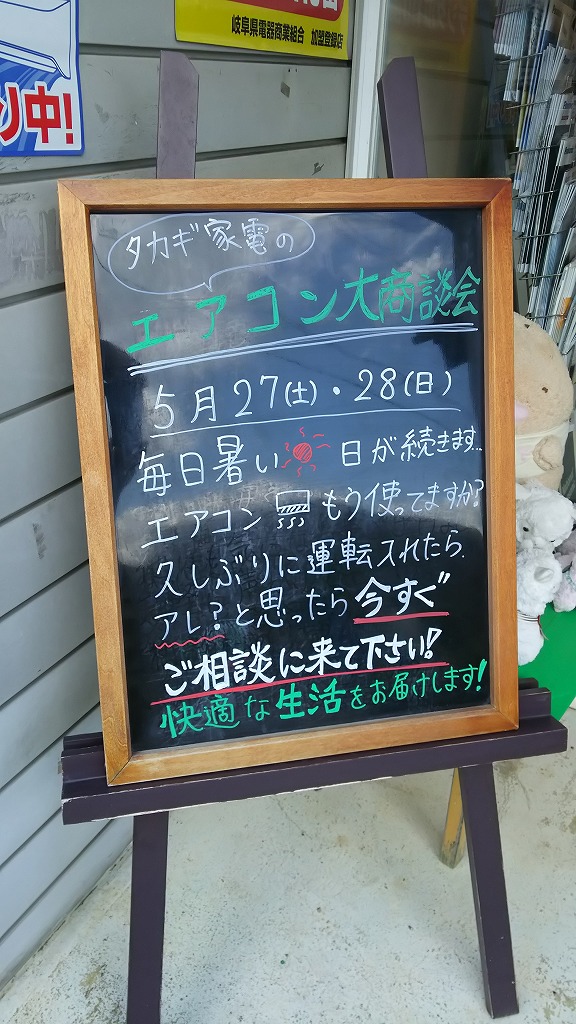 り中!
岐阜県電器商業組合 加盟登録店
タカギ家電の
エアコン大商談会
5月27(土)・28(日)
毎日暑い 日が続きます...
エアコン もう使ってますか?
久しぶりに運転入れたら、
アレ?と思ったら今すぐ
ご相談に来て下さい!
快適な生活をお届けします!